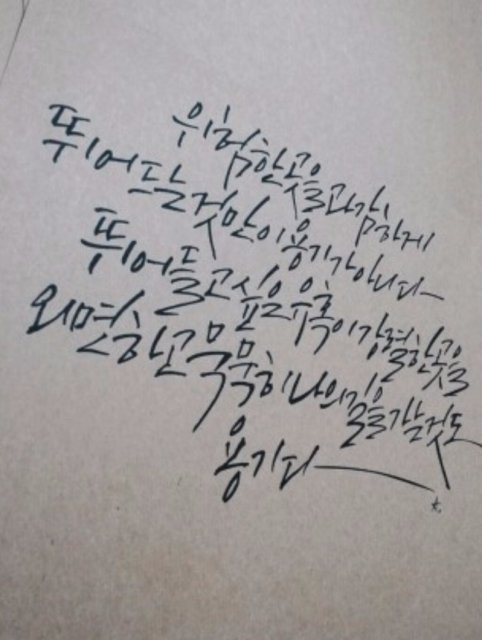 위험한 곳을 과감하게
뛰어드는 것만이 용기가 아니다
뛰어들고 싶은 유혹이 강렬한 곳을
외면하고 묵묵히 나의 길을 가는 것도
용기다